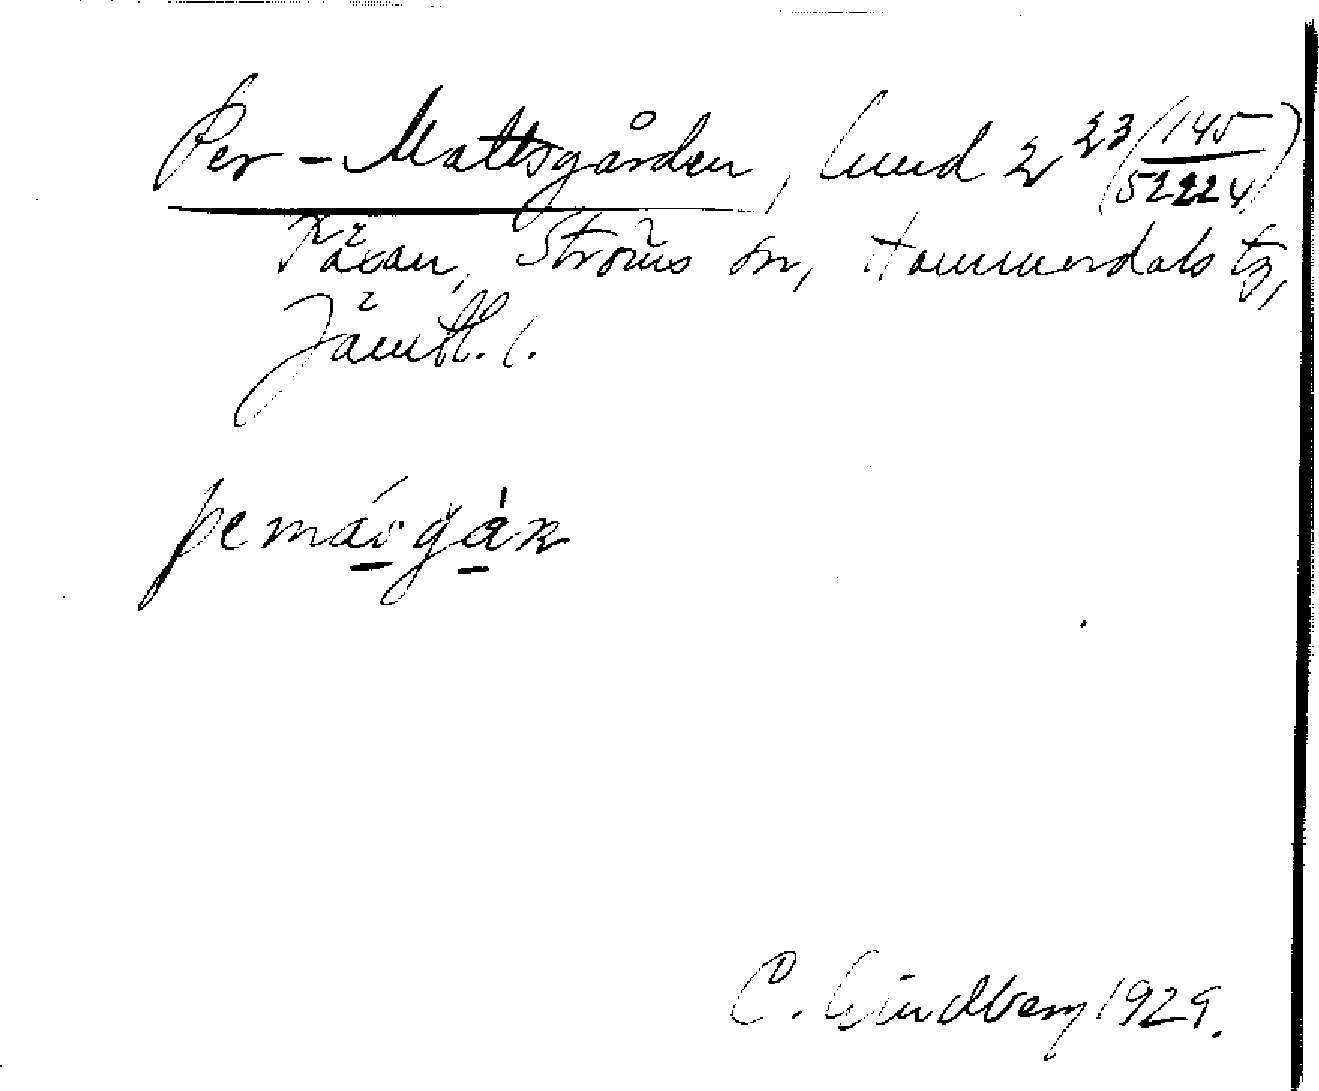 Per-Mattsgården, Lund 2 23 (145/52224)
Täxan, Ströms sn, Hammerdals tg,
Jämtl. l.
pemásgàn
C. Lindberg 1929.